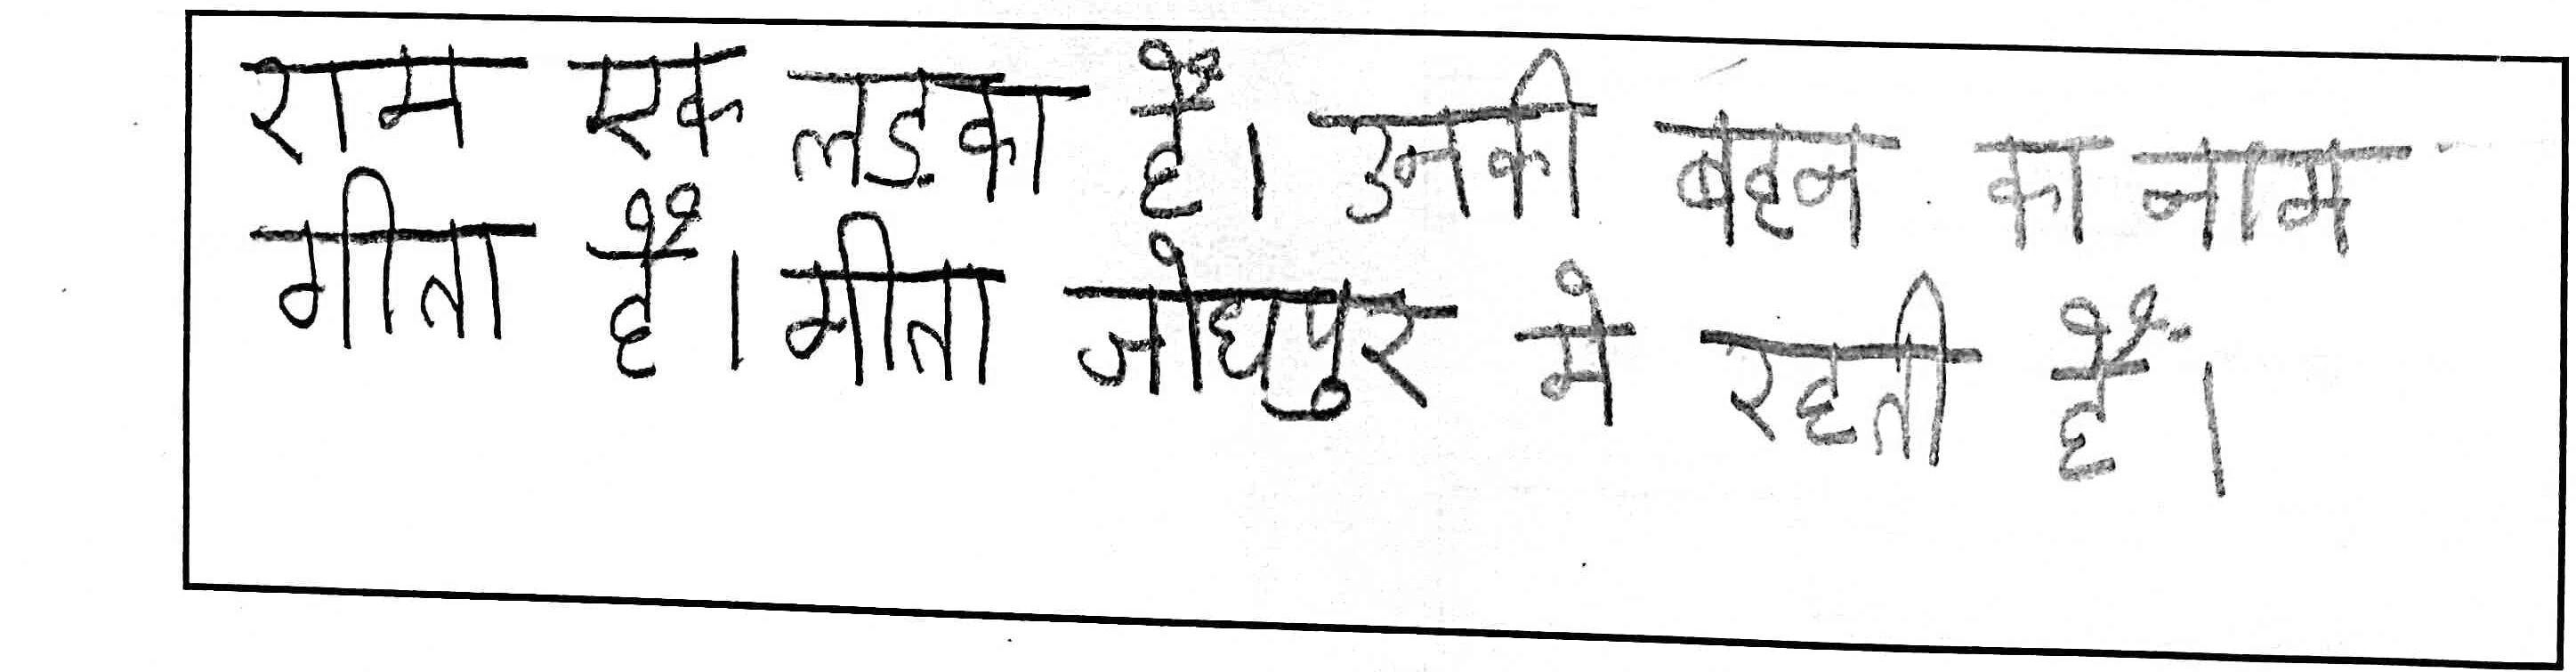 राम एक लड़का है। उनकी बहन का नाम
गीता है। गीता जोधपुर मे रहती है।